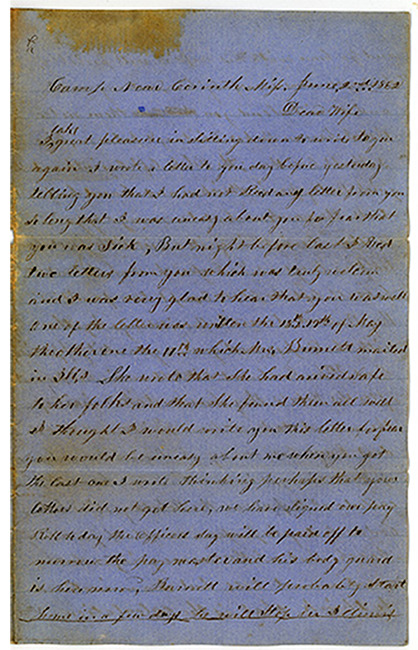 Camp Near Corinth Miss. June 2nd 1862
Dear Wife
I take
great pleasure in sitting down to write to you
again I wrote a letter to you day before yesterday
telling you that I had not recd any letter from you
so long that I was uneasy about you for fear that
you was sick, But night before last I recd
two letters from you which was truly welcom
and I was very glad to hear that you was well
one of the letter was written the 18th 19th of May
the other one the 11th which Mrs Burnett mailed
in Ills. She wrote that she had arrived safe
to her folks and that she found them all well
I thought I would write you this letter for fear
you would be uneasy about me when you got
the last one I wrote thinking perhaps that your
letters did not get here, we have signed our pay
roll today the officers say will be paid off to
morrow the pay master and his body guard
is here now, Burnett will probably start
home in a few days he will stop in Illinois